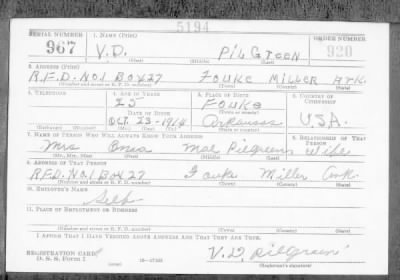 5194
SERIAL NUMBER 1. NAME (Print) ORDER NUMBER
967 V.D. PilGreen 920
(First) (Middle) (Last)
2. ADDRESS (Print)
R.F.D. No1 Box 27 Fouke Miller Ark.
(Number and street or R. F. D. number) (Town) (County) (State)
3. TELEPHONE 4. AGE IN YEARS 5. PLACE OF BIRTH 6. COUNTRY OF CITIZENSHIP
25 Fouke
DATE OF BIRTH (Town or county)
Oct. 23-1914 Arkansas U.S.A.
(Exchange) (Number) (Mo.) (Day) (Yr.) (State or country)
7. NAME OF PERSON WHO WILL ALWAYS KNOW YOUR ADDRESS 8. RELATIONSHIP OF THAT PERSON
Mrs Mae Pilgreen Wife
(Mr., Mrs., Miss) (First) (Middle) (Last)
9. ADDRESS OF THAT PERSON
R.F.D. No. 1 Box 27 Fouke Miller Ark.
(Number and street or R. F. D. number) (Town) (County) (State)
10. EMPLOYER'S NAME
Self
11. PLACE OF EMPLOYMENT OR BUSINESS
(Number and street or R. F. D. number) (Town) (County) (State)
I AFFIRM THAT I HAVE VERIFIED ABOVE ANSWERS AND THAT THEY ARE TRUE.
REGISTRATION CARD
D. S. S. Form 1 16-17105 V.D. Pilgreen
(Registrant's signature)